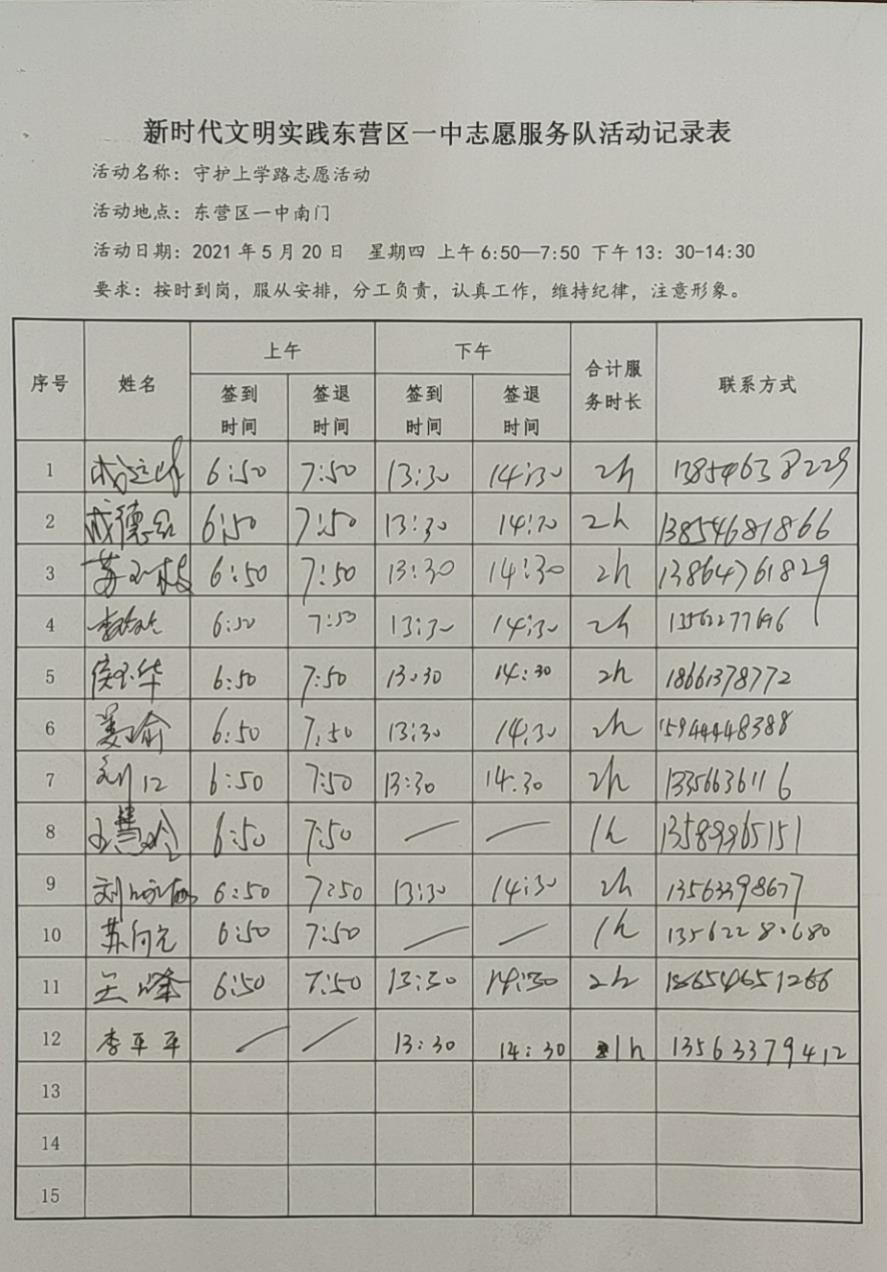 新时代文明实践东营区一中志愿服务队活动记录表
活动名称：守护上学路志愿活动
活动地点：东营区一中南门
活动日期：2021年5月20日 星期四 上午6:50—7:50 下午13：30-14:30
要求：按时到岗，服从安排，分工负责，认真工作，维持纪律，注意形象。
序号 姓名 上午 下午 合计服务时长 联系方式
签到时间 签退时间 签到时间 签退时间
1 6:50 7:50 13:30 14:30 2h 13854638229
2 成德 6:50 7:50 13:30 14:30 2h 13854681866
3 苏玉枝 6:50 7:50 13:30 14:30 2h 13864761829
4 6:50 7:50 13:30 14:30 2h
5 侯玉华 6:50 7:50 13:30 14:30 2h 18661378772
6 姜瑜 6:50 7:50 13:30 14:30 2h 15944448388
7 6:50 7:50 13:30 14:30 2h 13356636116
8 王慧玲 6:50 7:50 — — 1h 13589965151
9 刘 6:50 7:50 13:30 14:30 2h 13563398677
10 苏向元 6:50 7:50 — — 1h
11 王峰 6:50 7:50 13:30 14:30 2h 18654651266
12 李平平 — — 13:30 14:30 1h 13563379412
13
14
15